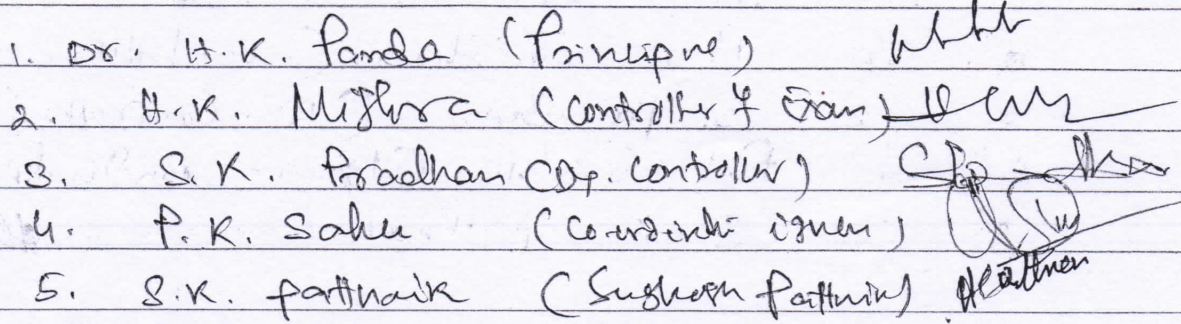 1. Dr. H.K. Panda (Principal)
2. H.K. Mishra (Controller of Exam)
3. S.K. Pradhan (Dy. Controller)
4. P.K. Sahu (Co-ordinator ignou)
5. S.K. pattnaik (